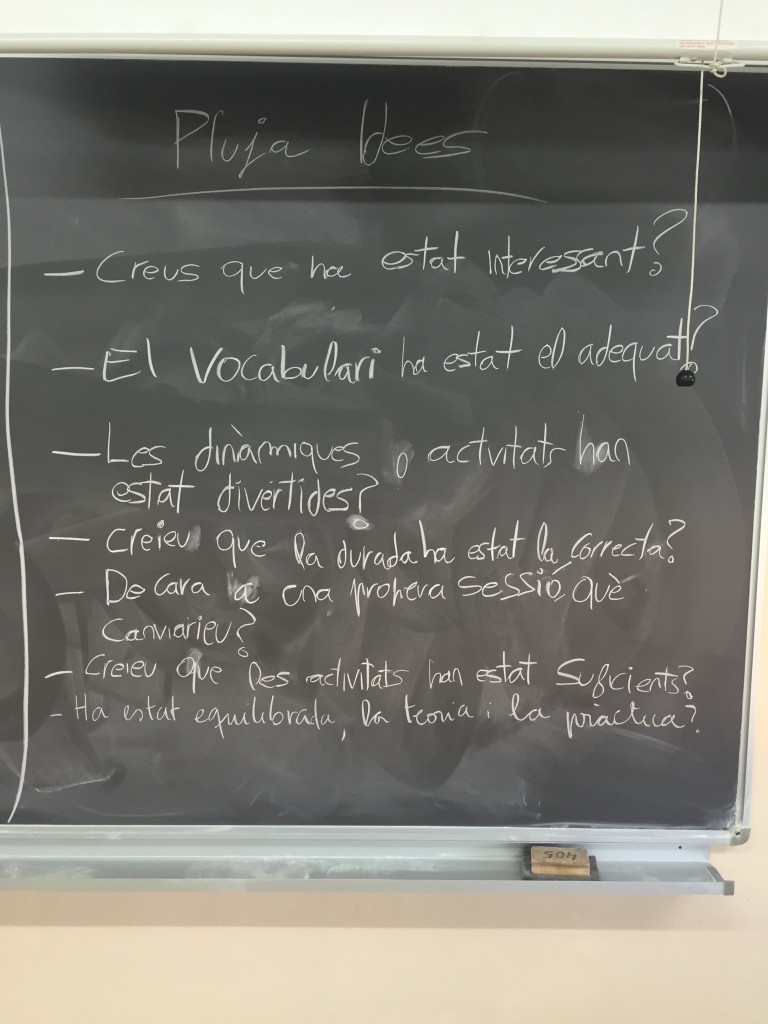 Pluja Idees
- Creus que ha estat interessant?
- El vocabulari ha estat el adequat?
- Les dinàmiques o activitats han
estat divertides?
- Creieu que la durada ha estat la correcta?
- De cara a una propera sessió, què
canviarieu?
- Creieu que les activitats han estat suficients?
- Ha estat equilibrada, la teoria i la pràctica?
504